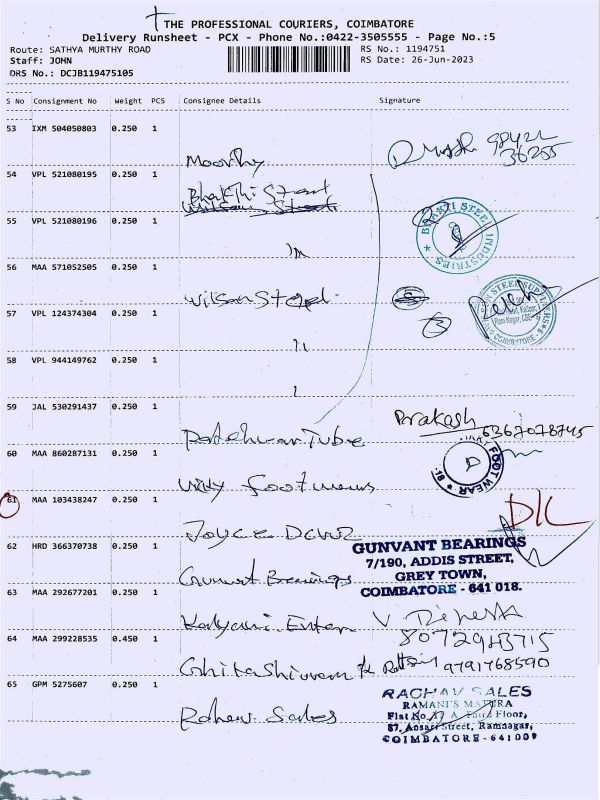 THE PROFESSIONAL COURIERS, COIMBATORE
Delivery Runsheet - PCX - Phone No.:0422-3505555 - Page No.:5
Route: SATHYA MURTHY ROAD
RS No.: 1194751
Staff: JOHN
RS Date: 26-Jun-2023
DRS No.: DCJB119475105
S No Consignment No Weight PCS Consignee Details Signature
53 IXM 504050803 0.250 1
Moorthy
98422
36255
54 VPL 521080195 0.250 1
Bhakthi Steel
55 VPL 521080196 0.250 1
BHAKTI STEEL INDUSTRIES
56 MAA 571052505 0.250 1
Wilson Steel
57 VPL 124374304 0.250 1
STEEL SUPPLIERS
Ram Nagar, CBE-9
COIMBATORE
58 VPL 944149762 0.250 1
59 JAL 530291437 0.250 1
Prakash
6367078745
Tube
60 MAA 860287131 0.250 1
FOOT WEAR
61 MAA 103438247 0.250 1
Joyce
62 HRD 366370738 0.250 1
GUNVANT BEARINGS
7/190, ADDIS STREET,
GREY TOWN,
COIMBATORE - 641 018.
Gunvant Bearings
63 MAA 292677201 0.250 1
V
8072943715
64 MAA 299228535 0.450 1
9791768590
65 GPM 5275607 0.250 1
RAGHAV SALES
RAMANI'S MAYURA
Flat No. A, Third Floor,
87, Ansari Street, Ramnagar,
COIMBATORE - 641009
Sales